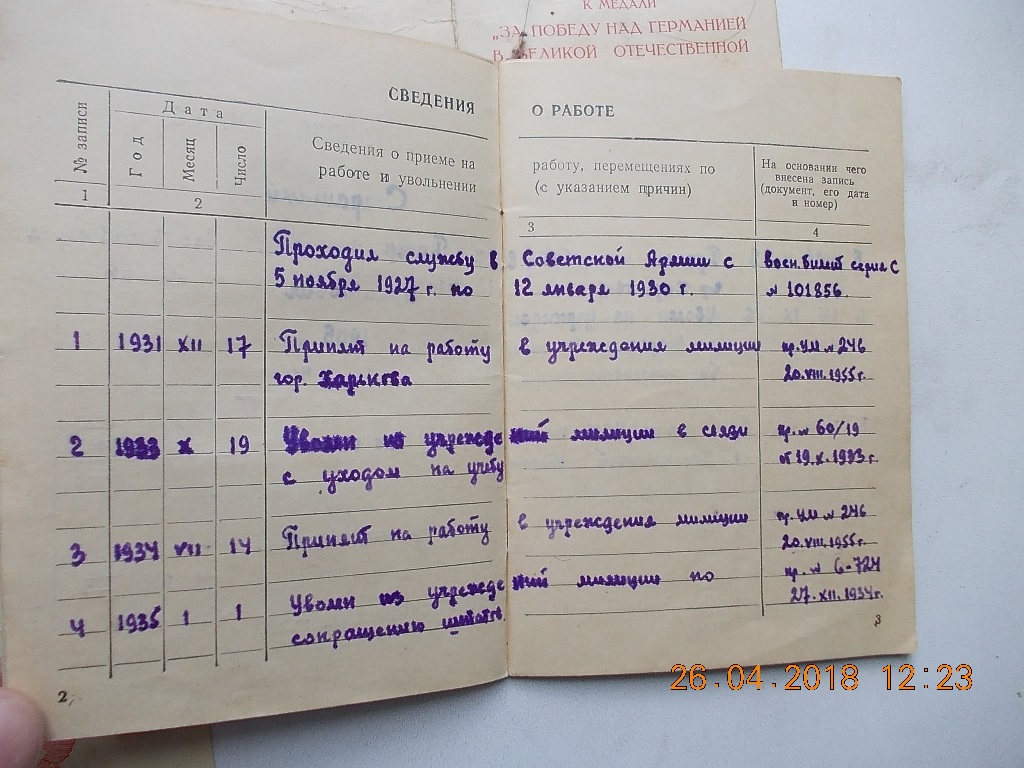 К МЕДАЛИ
„ЗА ПОБЕДУ НАД ГЕРМАНИЕЙ
В ВЕЛИКОЙ ОТЕЧЕСТВЕННОЙ
СВЕДЕНИЯ О РАБОТЕ
№ записи
Дата
Год
Месяц
Число
Сведения о приеме на работу, перемещениях по
работе и увольнении (с указанием причин)
На основании чего
внесена запись
(документ, его дата
и номер)
1 2 3 4
Проходил службу в Советской Армии с Воен. билет серия С
5 ноября 1927 г. по 12 января 1930 г. № 101856.
1 1931 XII 17 Принят на работу в учреждения милиции пр. УМ № 246
гор. Харькова 20.VIII.1955 г.
2 1933 X 19 Уволен из учреждений милиции в связи пр. № 60/19
с уходом на учебу от 19.X.1933 г.
3 1934 VII 14 Принят на работу в учреждения милиции пр. УМ № 246
20.VIII.1955 г.
4 1935 1 1 Уволен из учреждений милиции по пр. № 6-724
сокращению штатов. 27.XII.1934 г.
2
3
26.04.2018 12:23